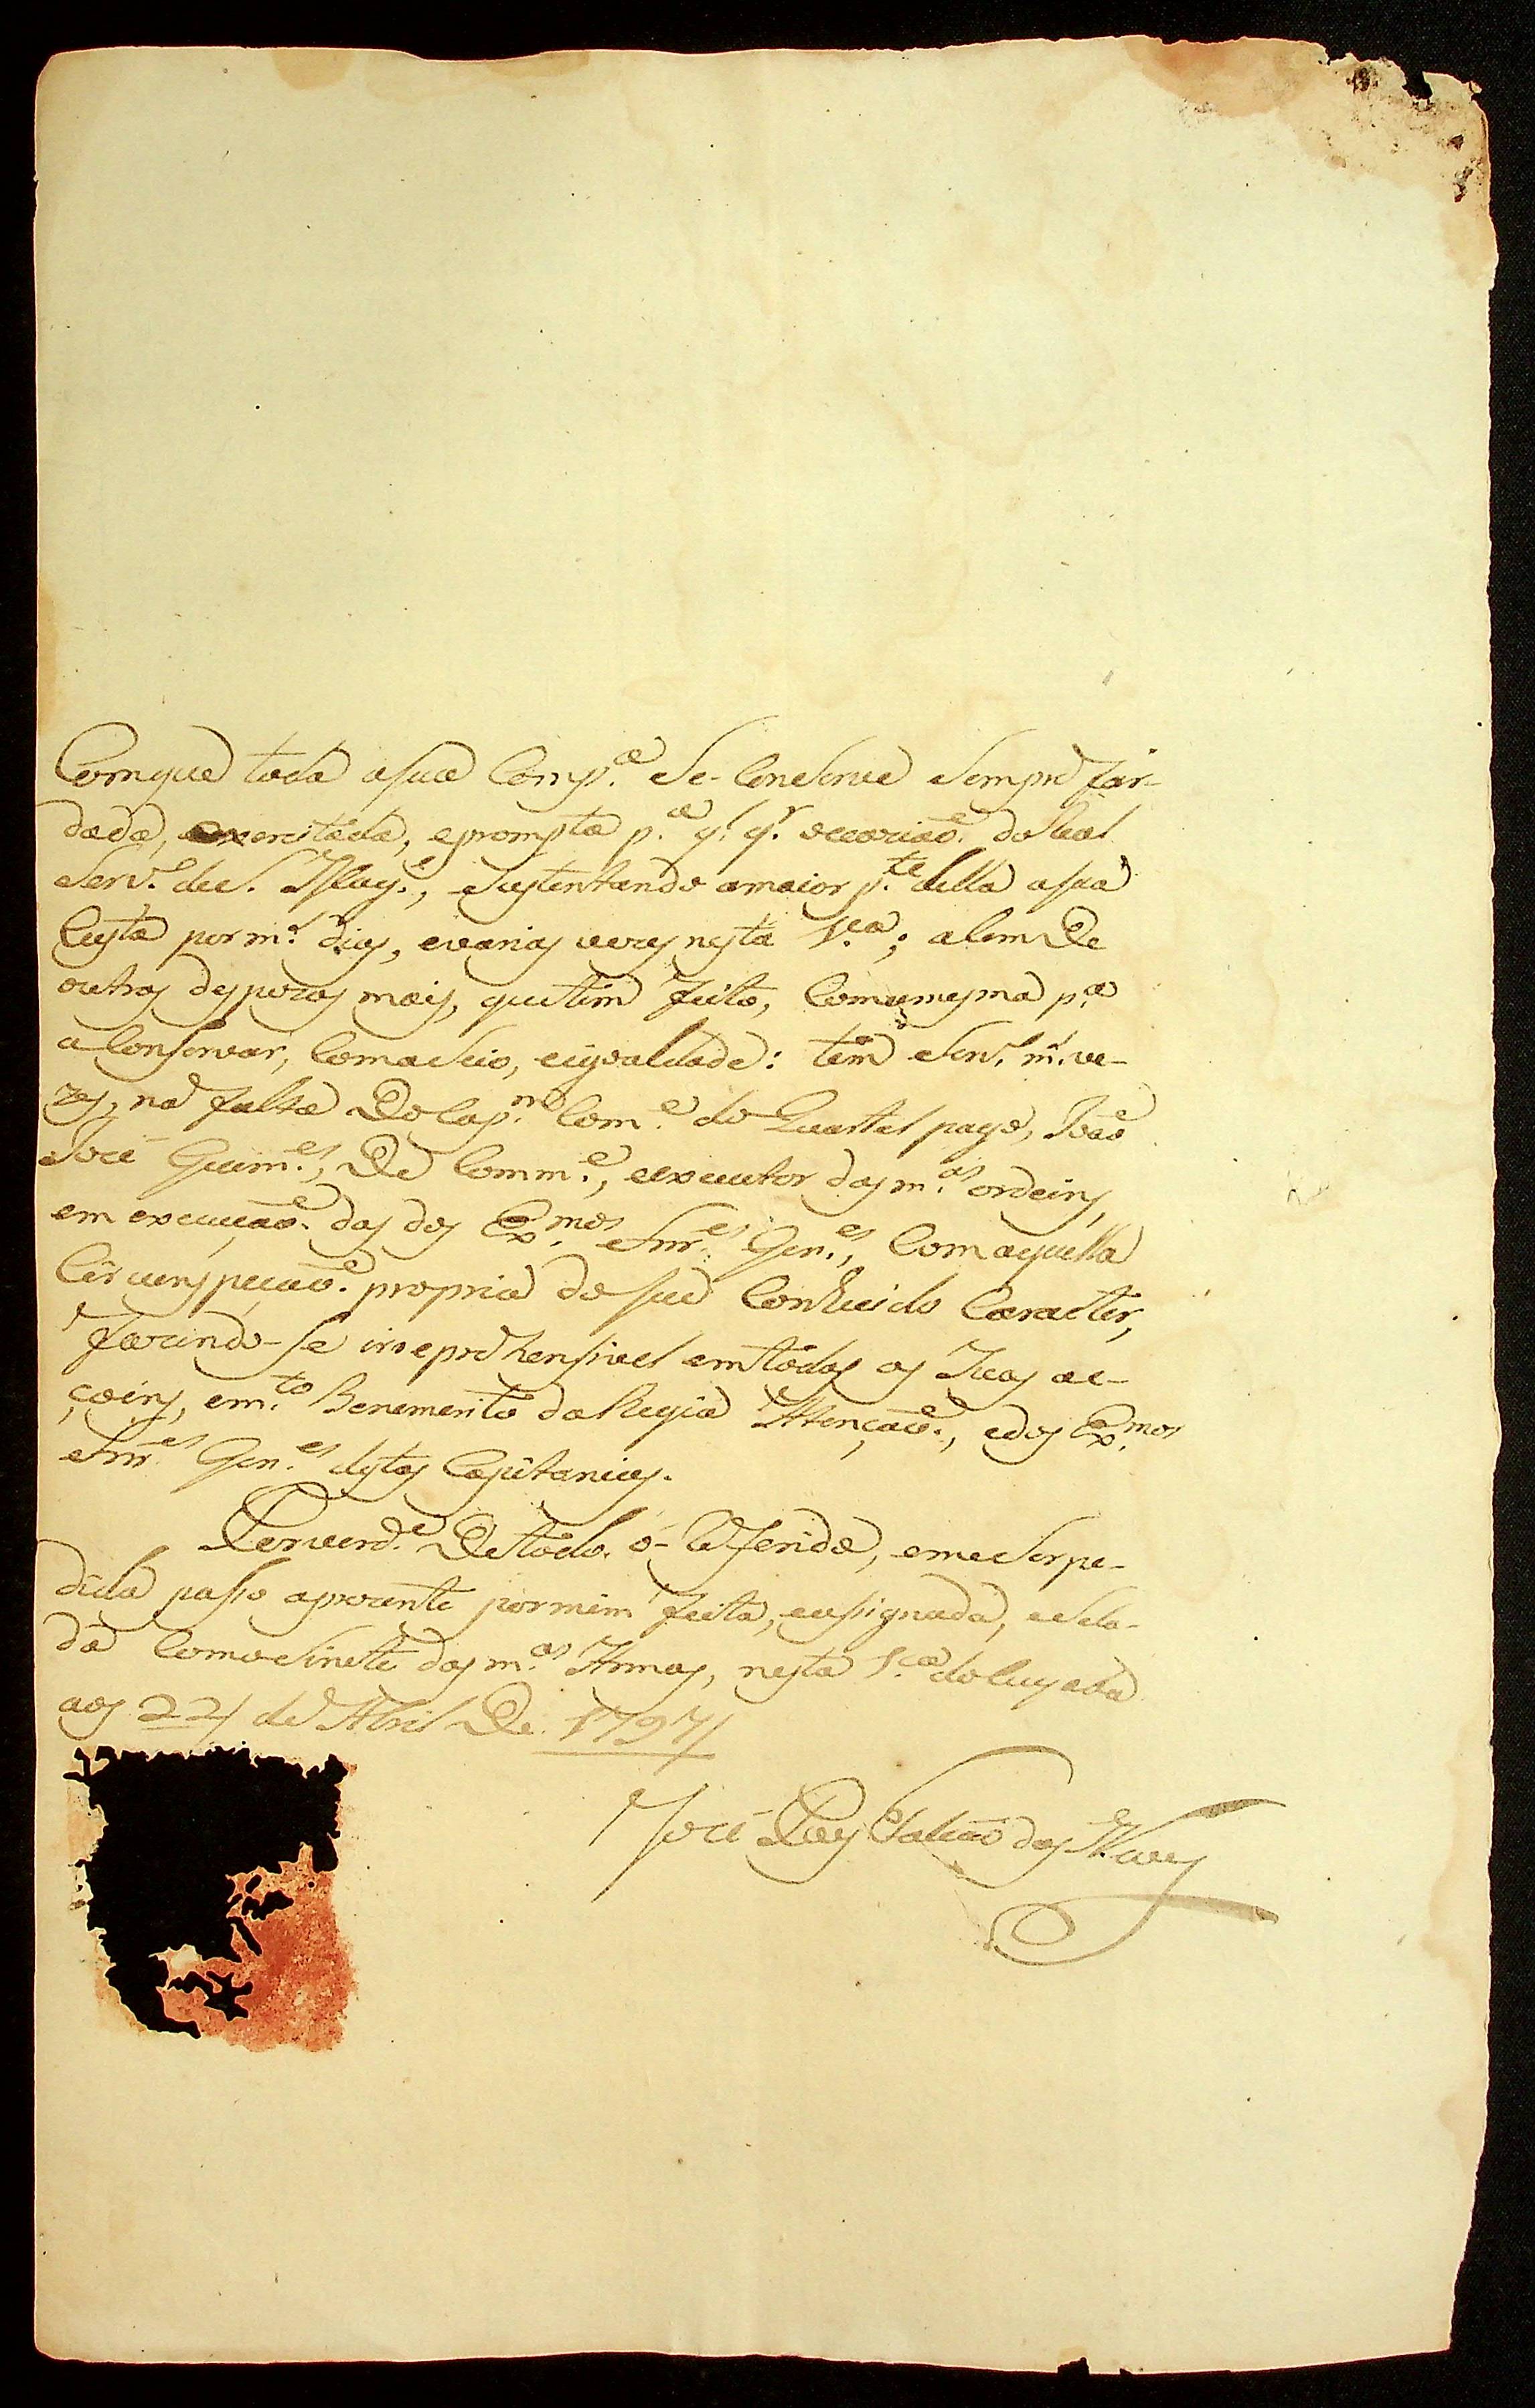 Comque toda asua Comp.ª Se-Conserve Sempre far-
dada, exercitada, eprompta p.ª q.l q.r occazião do Real
Serv.º de S. Mag.e, Sustentando amaior p.te della asua
Custa por m.s dias, evarias vezes nesta V.ª; alem De
outras despezas mais, quetem feito, Comamesma p.ª
a-Conservar, Comaseio, eigoaldade: tem Serv.º m.s ve-
zes, na falta Do Cap.m Com.e do Quartel pago, João
José Guim.es, De Comm.e, eexecutor das m.as ordeins,
em execução das dos Ex.mos Snr.es Gen.es, Comaquella
Circunspecção propria do seu Conhecido Caracter,
Fazendo-se irreprehensivel emtodas as Suas ac-
çoins, em.to Benemerito da Regia Attenção, edos Ex.mos
Snr.es Gen.es destas Capitanias.
Perverd.e Detodo o-Referido, eme Ser pe-
dida passo aprezente pormim feita, eassignada, eSela-
da Como Sinete das m.as Armas, nesta V.ª do Cuyaba
aos 22 de Abril De 1797
José Paes Falcão das Neves